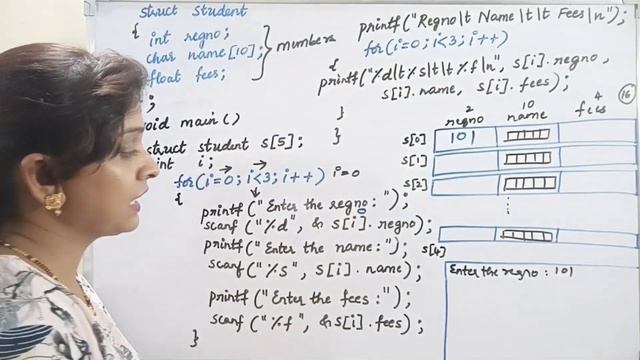 struct student
{
int regno;
char name[10];
float fees;
} members
};
void main()
struct student s[5];
int i;
for(i=0; i<3; i++) i=0
{
printf("Enter the regno:");
scanf("%d", &s[i].regno);
printf("Enter the name:");
scanf("%s", s[i].name);
printf("Enter the fees:");
scanf("%f", &s[i].fees);
}
printf("Regno\t Name\t\t Fees\n");
for(i=0; i<3; i++)
{
printf("%d\t%s\t\t%.f\n", s[i].regno,
s[i].name, s[i].fees);
}
}
16
2 10 4
regno name fees
s[0] 101
s[1]
s[2]
s[4]
Enter the regno: 101